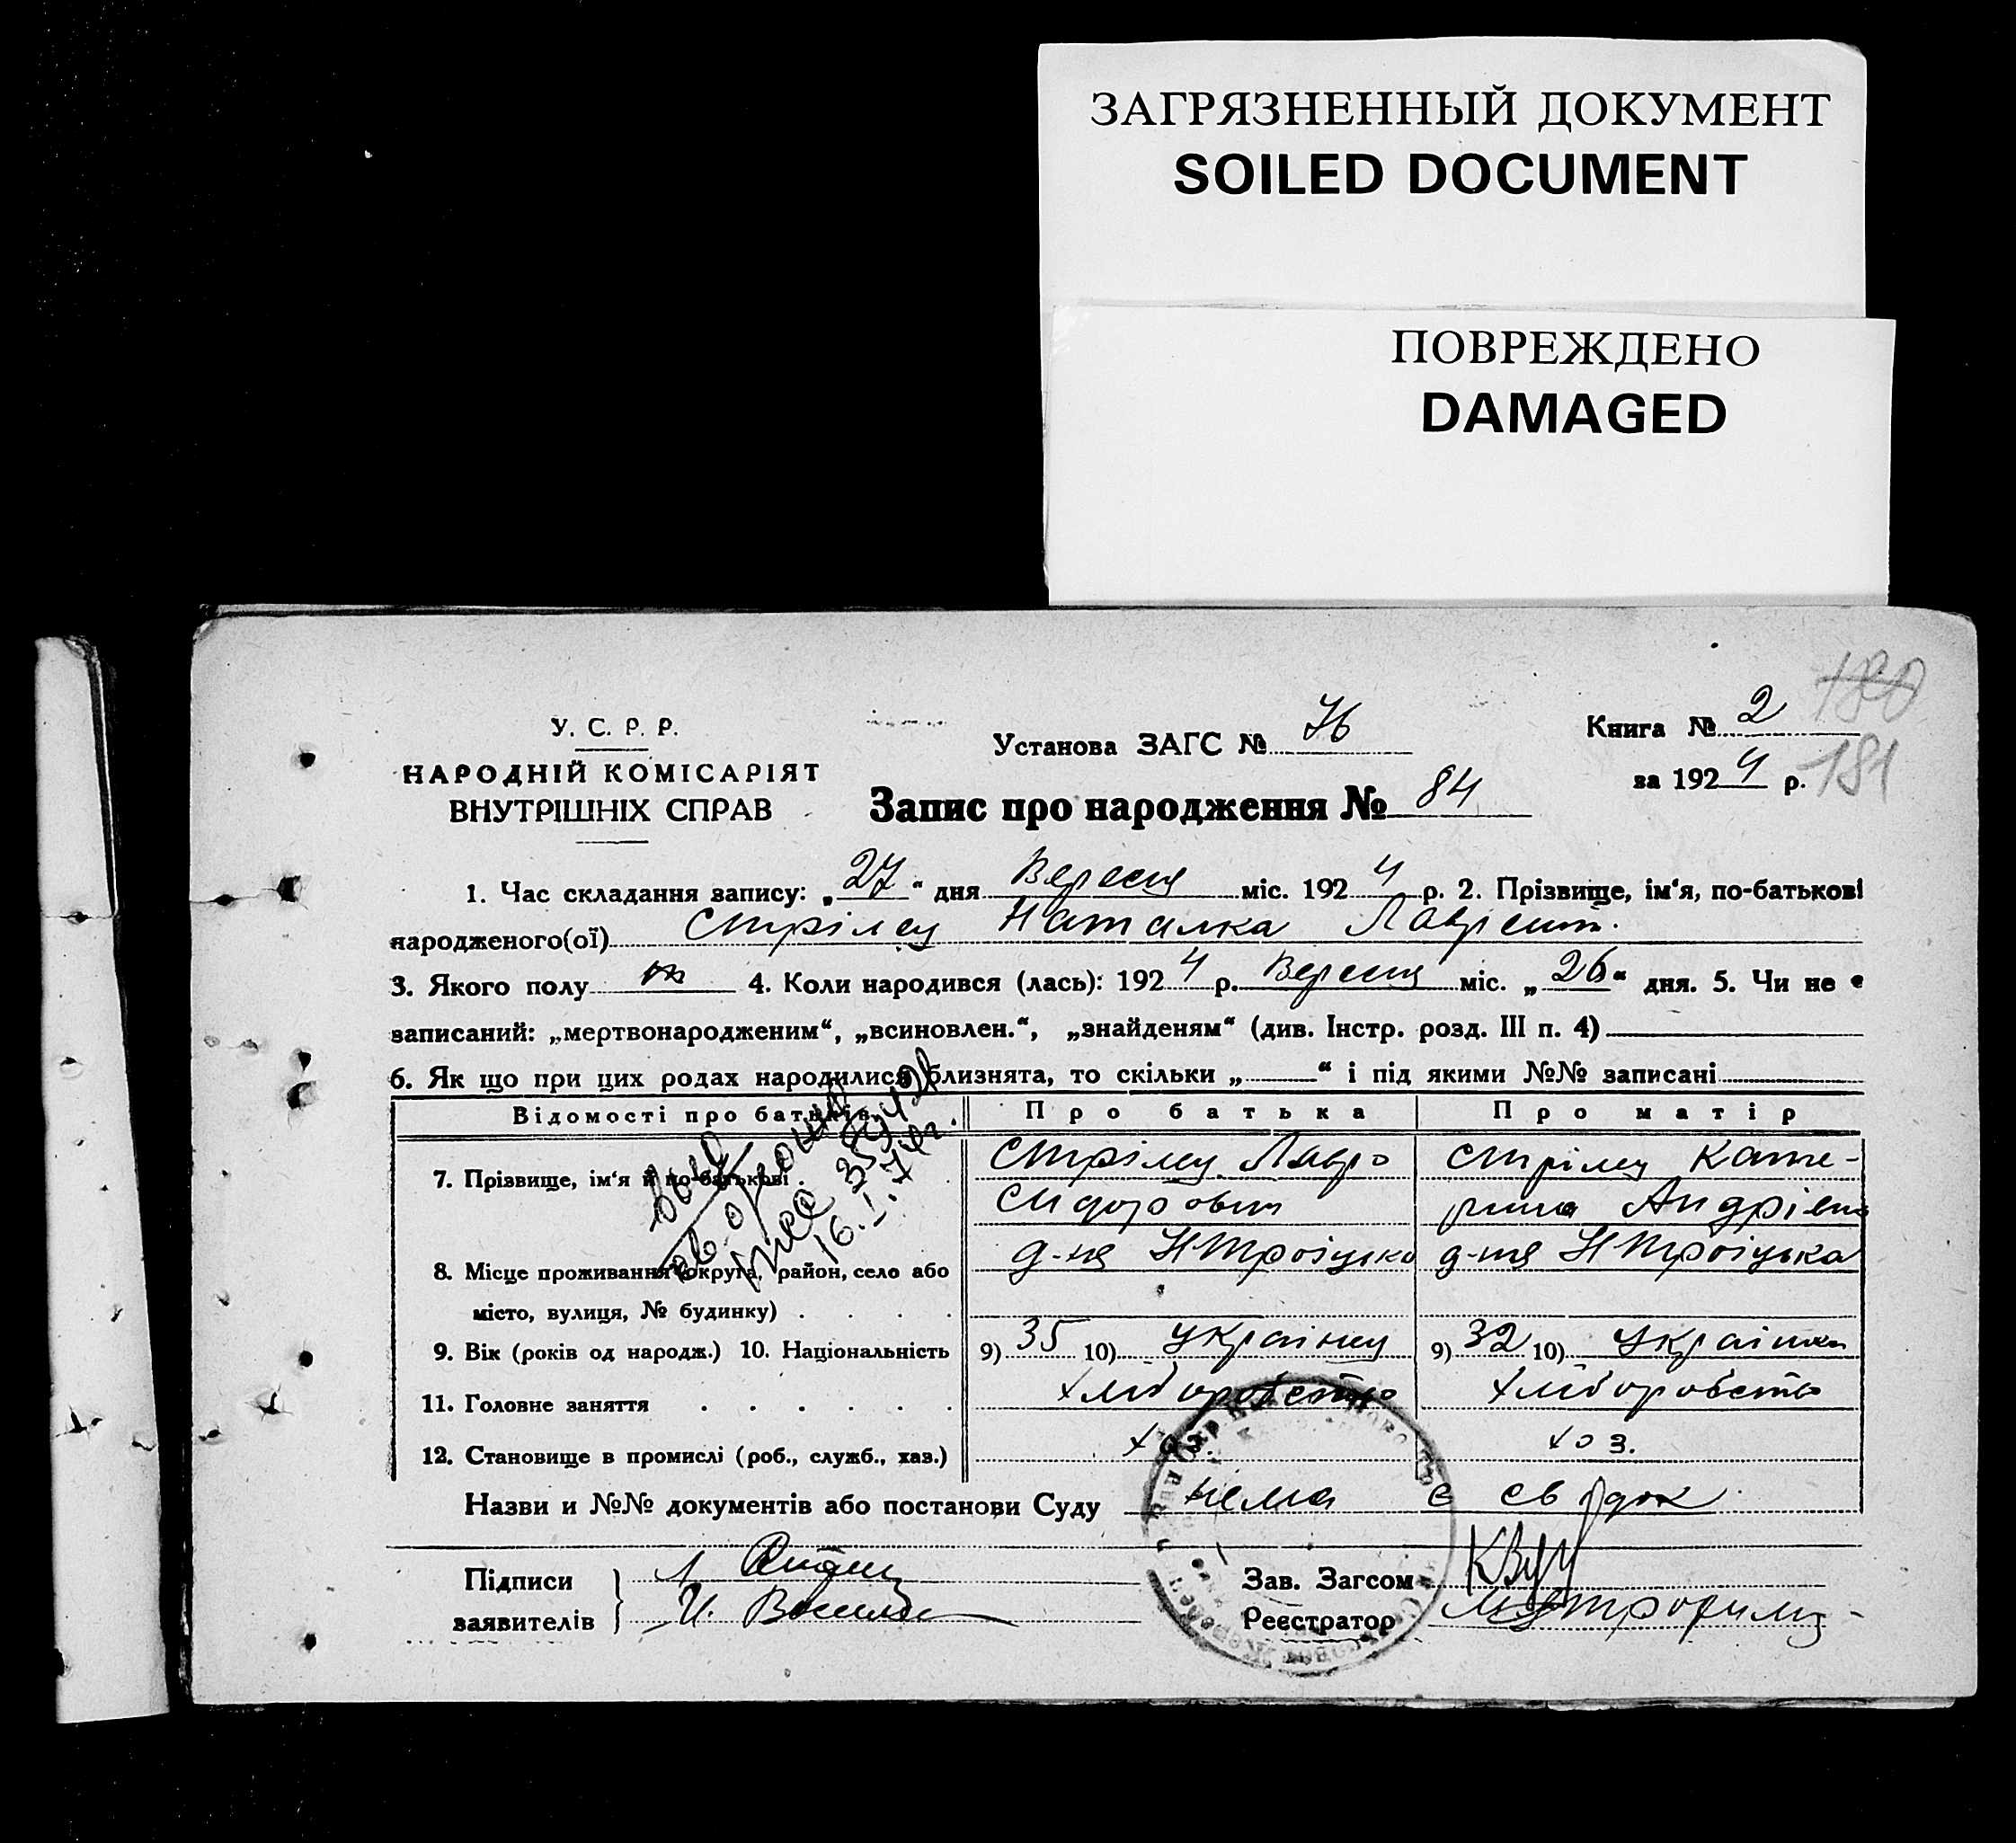 ЗАГРЯЗНЕННЫЙ ДОКУМЕНТ
SOILED DOCUMENT
ПОВРЕЖДЕНО
DAMAGED
180
181
У. С. Р. Р.
НАРОДНІЙ КОМІСАРІЯТ
ВНУТРІШНІХ СПРАВ
Установа ЗАГС № 76
Книга № 2
за 1924 р.
Запис про народження № 84
1. Час складання запису: „27“ дня Вересня міс. 1924 р. 2. Прізвище, ім‘я, по-батькові
народженого(ої) Стрілец Наталка Лаврент.
3. Якого полу ж 4. Коли народився (лась): 1924 р. Вересня міс. „26“ дня. 5. Чи не є
записаний: „мертвонародженим“, „всиновлен.“, „знайденям“ (див. Інстр. розд. III п. 4)
6. Як що при цих родах народилися близнята, то скільки „ “ і під якими №№ записані
Відомості про батьків. Про батька Про матір
7. Прізвище, ім‘я й по-батькові . Стрілец Лавро Стрілец Кате-
Сидорович рина Андріевна
8. Місце проживання (округа, район, село або д-ня НТроіцька д-ня НТроіцька
місто, вулиця, № будинку) . . . .
9. Вік (років од народж.) 10. Національність 9) 35 10) Українец 9) 32 10) Українка
11. Головне заняття . . . . . . хліборобство хліборобство
12. Становище в промислі (роб., служб., хаз.) хоз. хоз.
16.I.74г.
Назви и №№ документів або постанови Суду нема
Підписи
заявителів
Зав. Загсом
Реєстратор